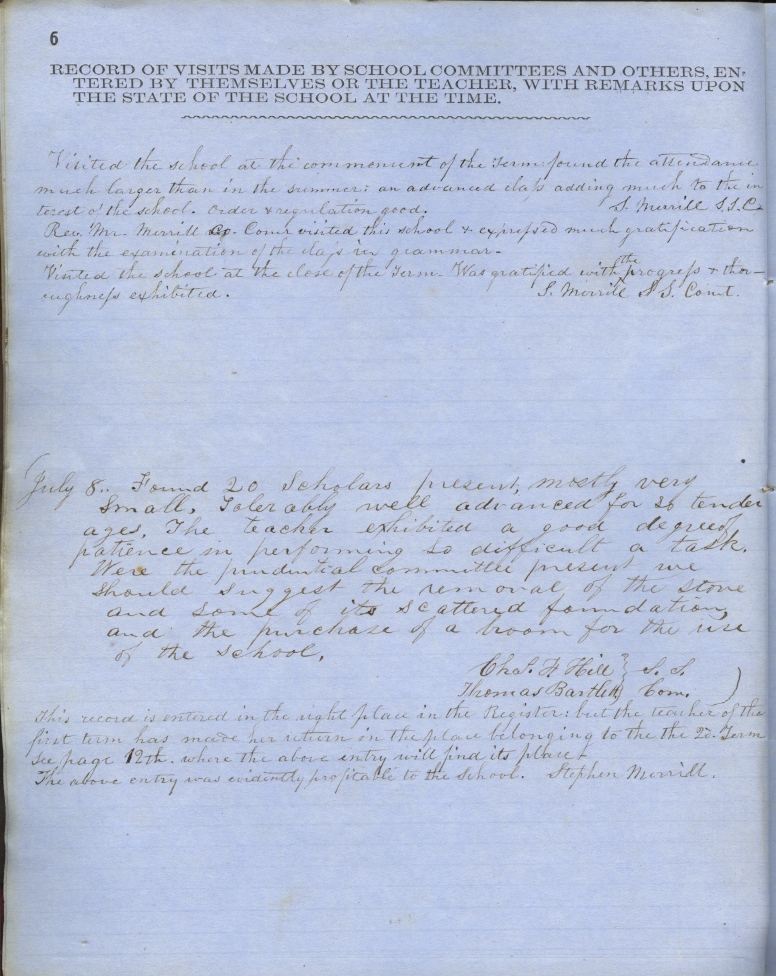 6
RECORD OF VISITS MADE BY SCHOOL COMMITTEES AND OTHERS, EN-
TERED BY THEMSELVES OR THE TEACHER, WITH REMARKS UPON
THE STATE OF THE SCHOOL AT THE TIME.
Visited the school at the commencment of the term: found the attendance
much larger than in the summer: an advanced claſs adding much to the in
terest o' the school. Order & regulation good. S. Merrill S.S.C.
Rev. Mr. Merrill Comr visited this school & expreſsed much gratification
with the examination of the claſs in grammar.
Visited the school at the close of the Term. Was gratified with the progreſs & thor-
oughneſs exhibited. S. Merrill S S. Comt.
July 8.. Found 20 Scholars present, mostly very
small. Tolerably well advanced for so tender
ages. The teacher exhibited a good degree of
patience in performing so difficult a task.
Were the prudential committee present we
should suggest the removal of the stove
and some of its scattered foundation,
and the purchase of a broom for the use
of the school.
Chas. F Hill } S. S.
Thomas Bartlett } Com. )
This record is entered in the right place in the Register: but the teacher of the
first term has made her return on the place belonging to the the 2d. Term
See page 12th. where the above entry will find its place.
The above entry was evidently profitable to the School. Stephen Merrill.